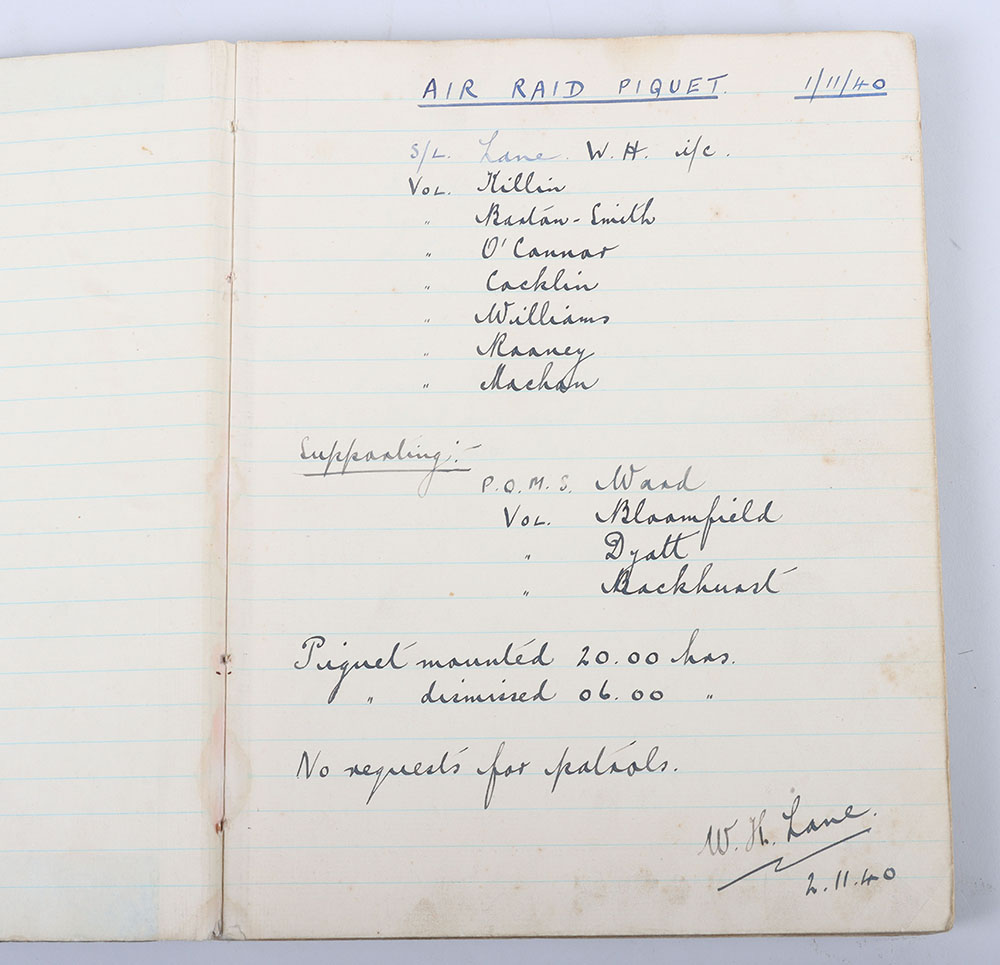 AIR RAID PIQUET. 1/11/40
S/L. Lane. W. H. i/c.
VOL. Killin
" Barton-Smith
" O'Connor
" Cocklin
" Williams
" Rooney
" Machan
Supporting:-
P.O.M.S. Ward
VOL. Bloomfield
" Dyatt
" Backhurst
Piquet mounted 20.00 hrs.
" dismissed 06.00 "
No requests for patrols.
W. H. Lane.
2.11.40